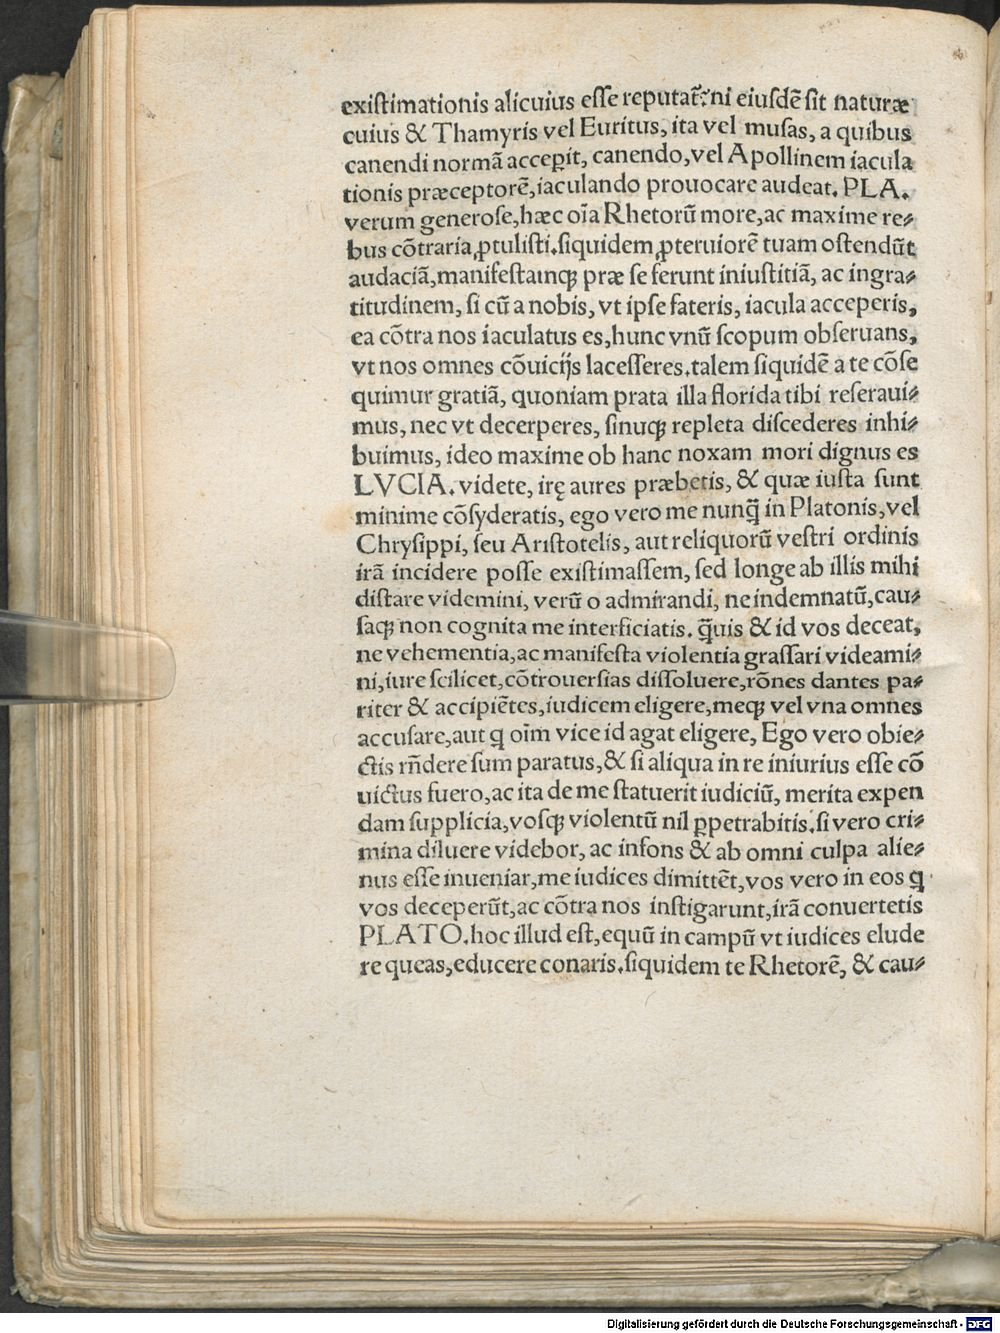 existimationis alicuius esse reputat᷑? ni eiusdē sit naturæ
cuius & Thamyris vel Euritus, ita vel musas, a quibus
canendi normā accepit, canendo, vel Apollinem iacula
tionis præceptorē, iaculando prouocare audeat. PLA.
verum generose, hæc oīa Rhetorū more, ac maxime re⸗
bus cōtraria ꝓtulisti. siquidem ꝓteruiorē tuam ostendūt
audaciā, manifestamqꝫ præ se ferunt iniustitiā, ac ingra⸗
titudinem, si cū a nobis, vt ipse fateris, iacula acceperis,
ea cōtra nos iaculatus es, hunc vnū scopum obseruans,
vt nos omnes cōuicijs lacesseres. talem siquidē a te cōse
quimur gratiā, quoniam prata illa florida tibi reseraui⸗
mus, nec vt decerperes, sinuqꝫ repleta discederes inhi⸗
buimus, ideo maxime ob hanc noxam mori dignus es
LVCIA. videte, irę aures præbetis, & quæ iusta sunt
minime cōsyderatis, ego vero me nunq̄ in Platonis, vel
Chrysippi, seu Aristotelis, aut reliquorū vestri ordinis
irā incidere posse existimassem, sed longe ab illis mihi
distare videmini, verū o admirandi, ne indemnatū, cau⸗
saqꝫ non cognita me interficiatis. q̄uis & id vos deceat,
ne vehementia, ac manifesta violentia grassari videami⸗
ni, iure scilicet, cōtrouersias dissoluere, rōnes dantes pa⸗
riter & accipiētes, iudicem eligere, meqꝫ vel vna omnes
accusare, aut q oīm vice id agat eligere, Ego vero obie⸗
ctis rn̄dere sum paratus, & si aliqua in re iniurius esse cō
uictus fuero, ac ita de me statuerit iudiciū, merita expen
dam supplicia, vosqꝫ violentū nil ꝑpetrabitis. si vero cri⸗
mina diluere videbor, ac insons & ab omni culpa alie⸗
nus esse inueniar, me iudices dimittēt, vos vero in eos q
vos deceperūt, ac cōtra nos instigarunt, irā conuertetis
PLATO. hoc illud est, equū in campū vt iudices elude
re queas, educere conaris. siquidem te Rhetorē, & cau⸗
Digitalisierung gefördert durch die Deutsche Forschungsgemeinschaft - DFG